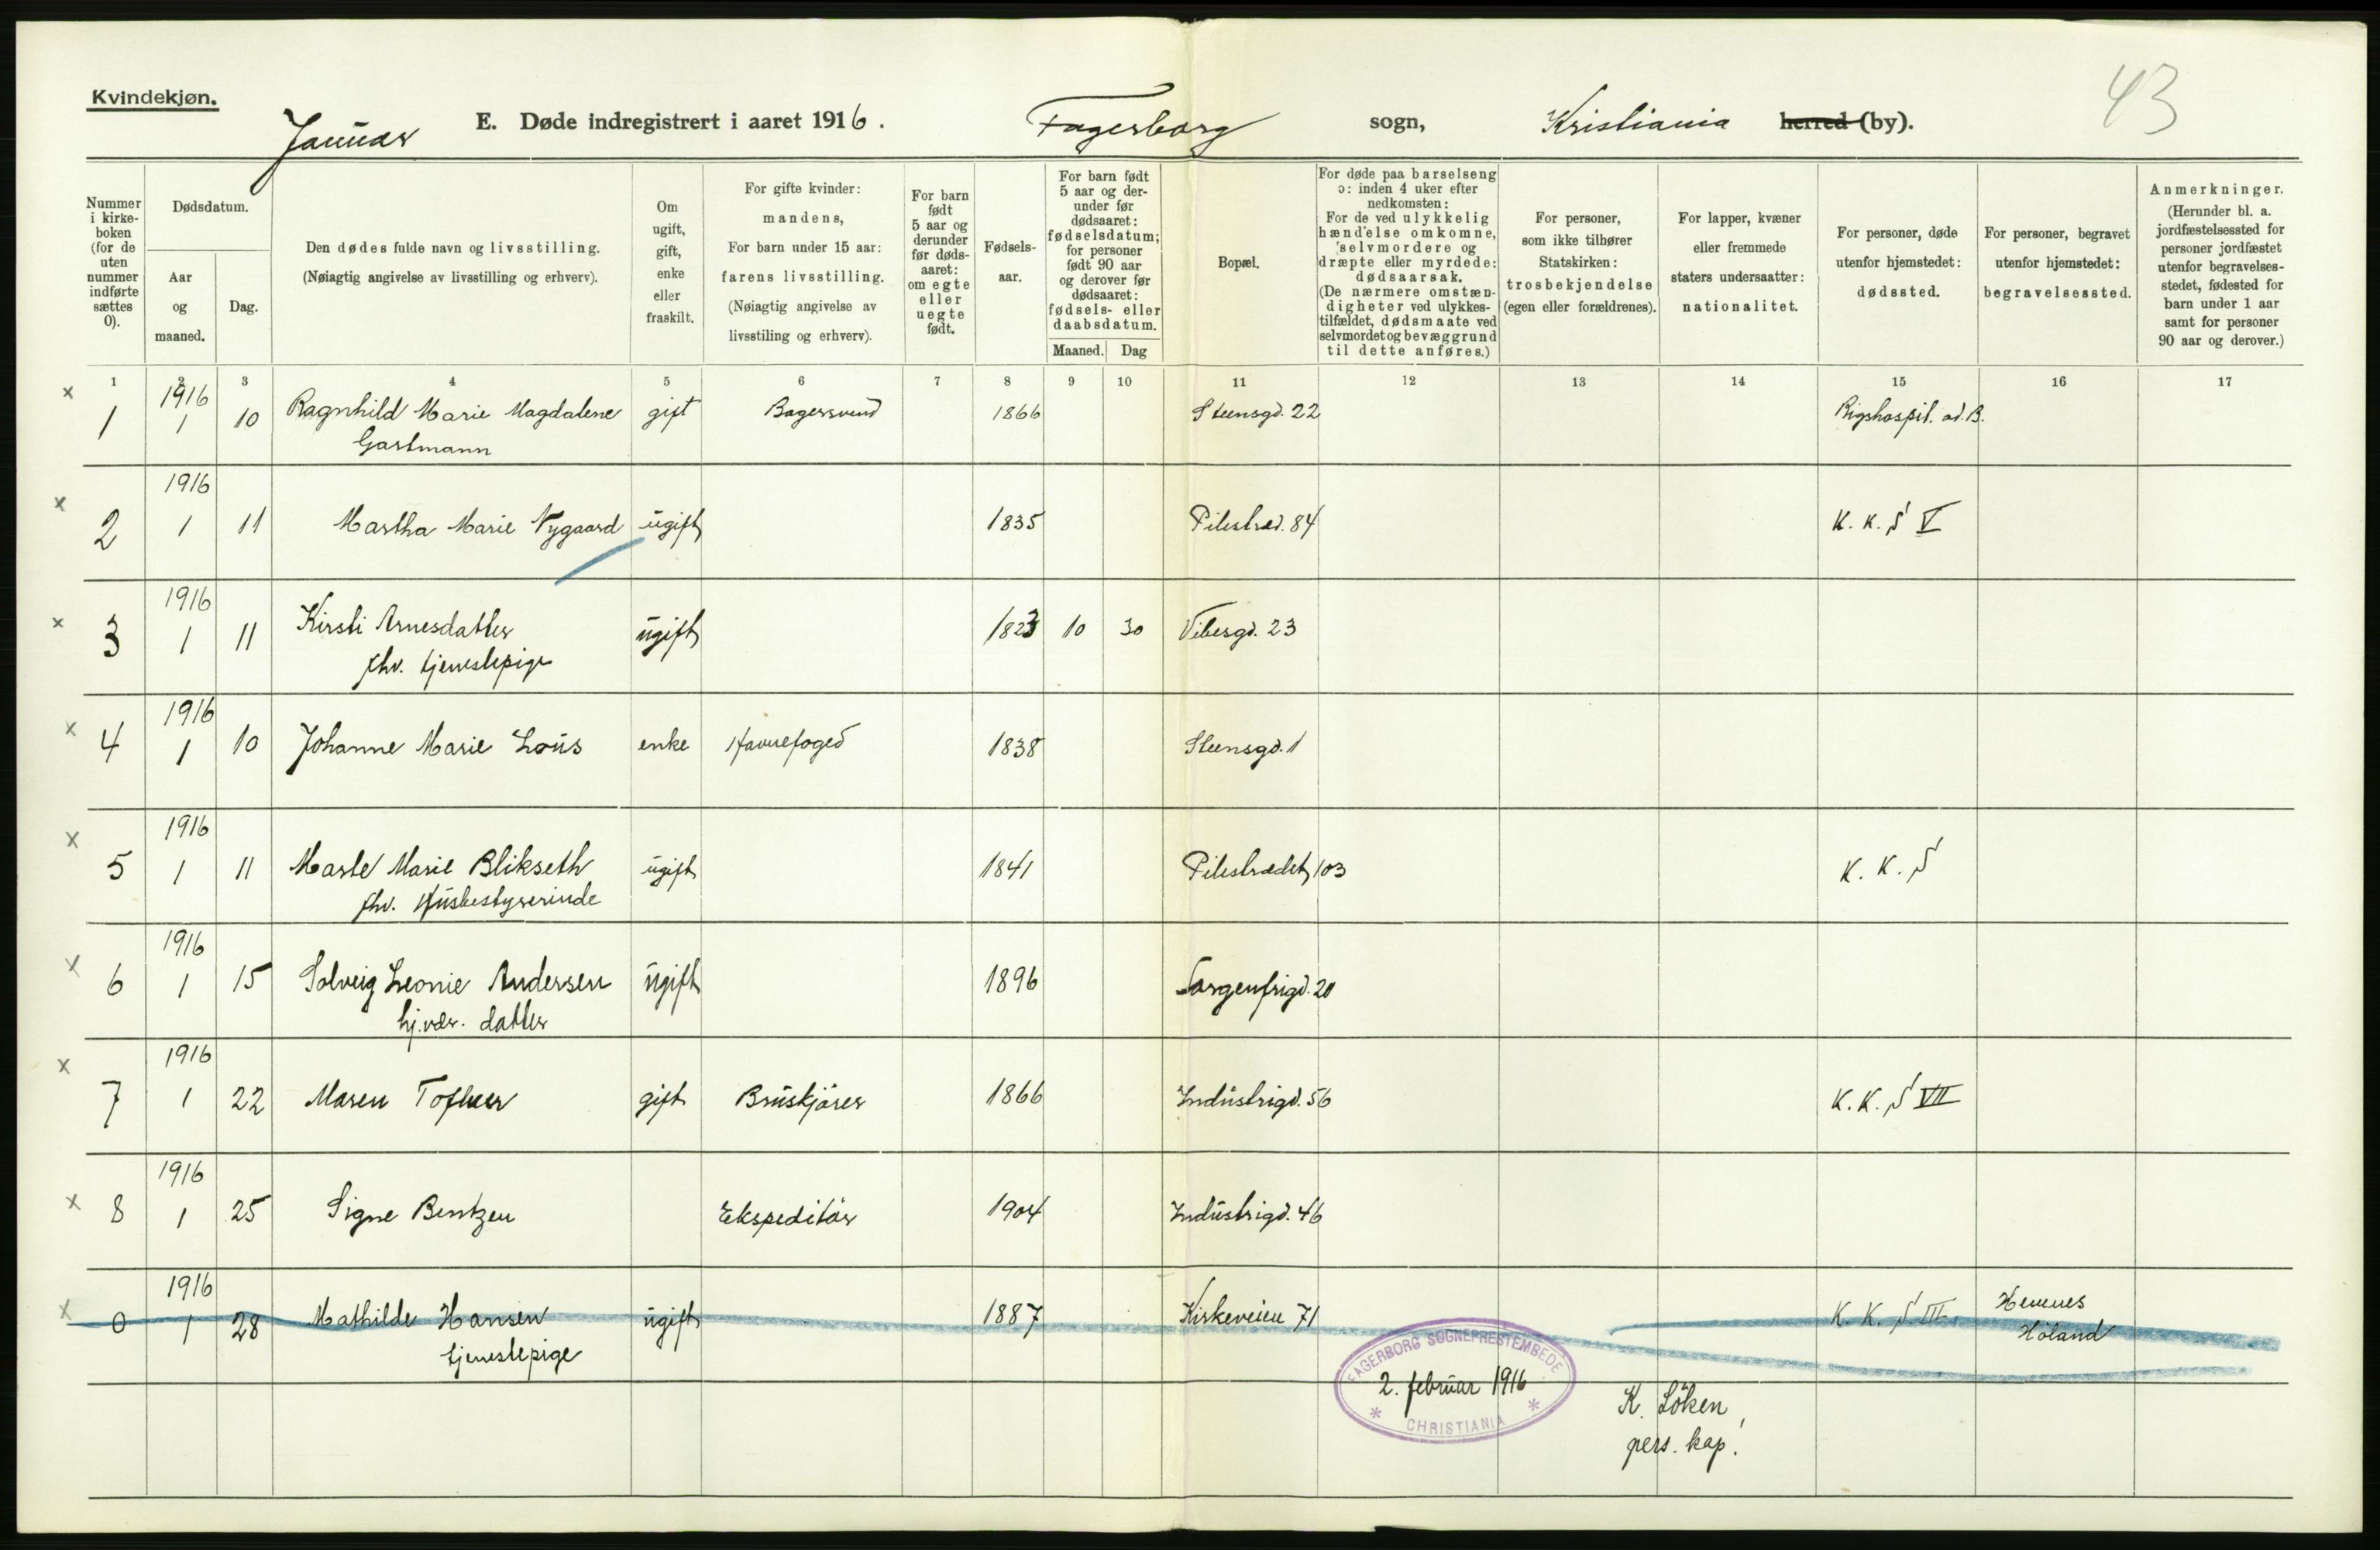 Kvindekjøn.
43
Januar E. Døde indregistrert i aaret 1916. Fagerborg sogn, Kristiania herred (by).
Nummer i kirke-boken (for de uten nummer indførte sættes 0).
Dødsdatum.
Aar og maaned.
Dag.
Den dødes fulde navn og livsstilling.
(Nøiagtig angivelse av livsstilling og erhverv).
Om ugift, gift, enke eller fraskilt.
For gifte kvinder: mandens,
For barn under 15 aar: farens livsstilling.
(Nøiagtig angivelse av livsstiling og erhverv).
For barn født 5 aar og derunder før døds-aaret: om egte eller uegte født.
Fødsels-aar.
For barn født 5 aar og der-under før dødsaaret: fødselsdatum; for personer født 90 aar og derover før dødsaaret: fødsels- eller daabsdatum.
Maaned. Dag
Bopæl.
For døde paa barselseng ɔ: inden 4 uker efter nedkomsten:
For de ved ulykkelig hændelse omkomne, selvmordere og dræpte eller myrdede: dødsaarsak.
(De nærmere omstæn-digheter ved ulykkes-tilfældet, dødsmaate ved selvmordet og bevæggrund til dette anføres.)
For personer, som ikke tilhører Statskirken: trosbekjendelse (egen eller forældrenes).
For lapper, kvæner eller fremmede staters undersaatter: nationalitet.
For personer, døde utenfor hjemstedet: dødssted.
For personer, begravet utenfor hjemstedet: begravelsessted.
Anmerkninger.
(Herunder bl. a. jordfæstelsessted for personer jordfæstet utenfor begravelses-stedet, fødested for barn under 1 aar samt for personer 90 aar og derover.)
1 2 3 4 5 6 7 8 9 10 11 12 13 14 15 16 17
x 1 1916 1 10 Ragnhild Marie Magdalene gift Bagersvend 1866 Steensgd. 22 Rigshospit. ad. B.
Gartmann
1916
x 2 1 11 Martha Marie Nygaard ugift 1835 Pilestræd. 84 K. K. S V
1916
x 3 1 11 Kirsti Arnesdatter ugift 1823 10 30 Vibesgd. 23
fhv. tjenestepige
1916
x 4 1 10 Johanne Marie Lous enke Havnefoged 1838 Steensgd. 1
1916
x 5 1 11 Marte Marie Blikseth ugift 1841 Pilestrædet 103 K. K. S
fhv. Husbestyrerinde
1916
x 6 1 15 Solveig Leonie Andersen ugift 1896 Sorgenfrigd. 20
hj.vær. datter
1916
x 7 1 22 Maren gift Bruskjører 1866 Industrigd. 56 K. K. S VII
1916
x 8 1 25 Signe Bentzen Ekspeditør 1904 Industrigd. 46
1916
x 0 1 28 Mathilde Hansen ugift 1887 Kirkeveien 71 K. K. S. III. Hemnes
tjenestepige Höland
FAGERBORG SOGNEPRESTEMBEDE
2. februar 1916
* CHRISTIANIA *
K. Löken,
pers. kap.